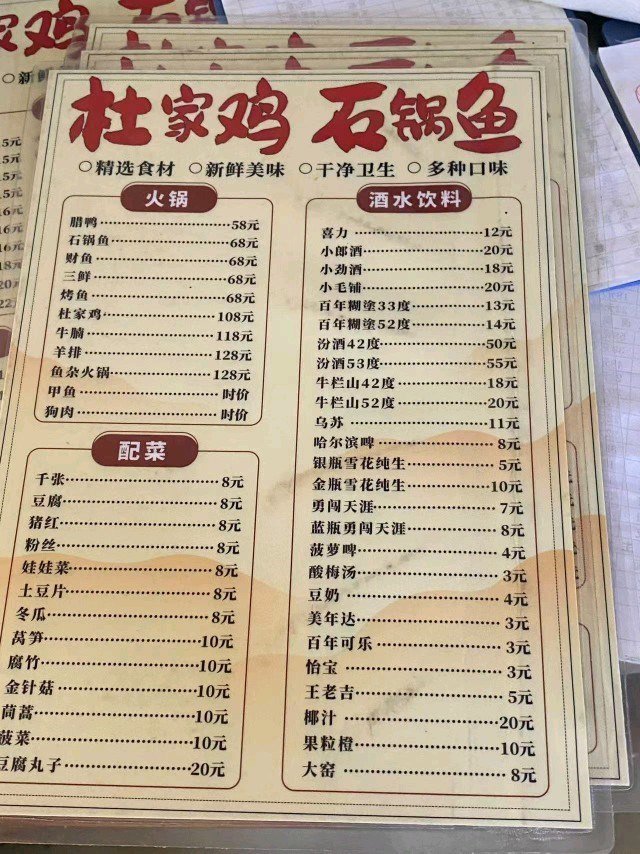 杜家鸡 石锅鱼
○精选食材 ○新鲜美味 ○干净卫生 ○多种口味
火锅
腊鸭 58元
石锅鱼 68元
财鱼 68元
三鲜 68元
烤鱼 68元
杜家鸡 108元
牛腩 118元
羊排 128元
鱼杂火锅 128元
甲鱼 时价
狗肉 时价
配菜
千张 8元
豆腐 8元
猪红 8元
粉丝 8元
娃娃菜 8元
土豆片 8元
冬瓜 8元
莴笋 10元
腐竹 10元
金针菇 10元
茼蒿 10元
菠菜 10元
豆腐丸子 20元
酒水饮料
喜力 12元
小郎酒 20元
小劲酒 18元
小毛铺 20元
百年糊塗33度 13元
百年糊塗52度 14元
汾酒42度 50元
汾酒53度 55元
牛栏山42度 18元
牛栏山52度 20元
乌苏 11元
哈尔滨啤 8元
银瓶雪花纯生 5元
金瓶雪花纯生 10元
勇闯天涯 7元
蓝瓶勇闯天涯 8元
菠萝啤 4元
酸梅汤 3元
豆奶 4元
美年达 3元
百年可乐 3元
怡宝 3元
王老吉 5元
椰汁 20元
果粒橙 10元
大窑 8元